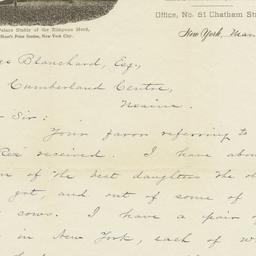 Palace Stable of the Simpson Herd,
Hunt's Point Station, New York City.
Office, No. 51 Chatham St
New York, Mar
Blanchard, Esq.,
Cumberland Centre,
Maine.
Sir:
Your favor referring to
Rex" received. I have abou
of the best daughters the ol
got, and out of some of
cows. I have a pair of
in New York, each of w